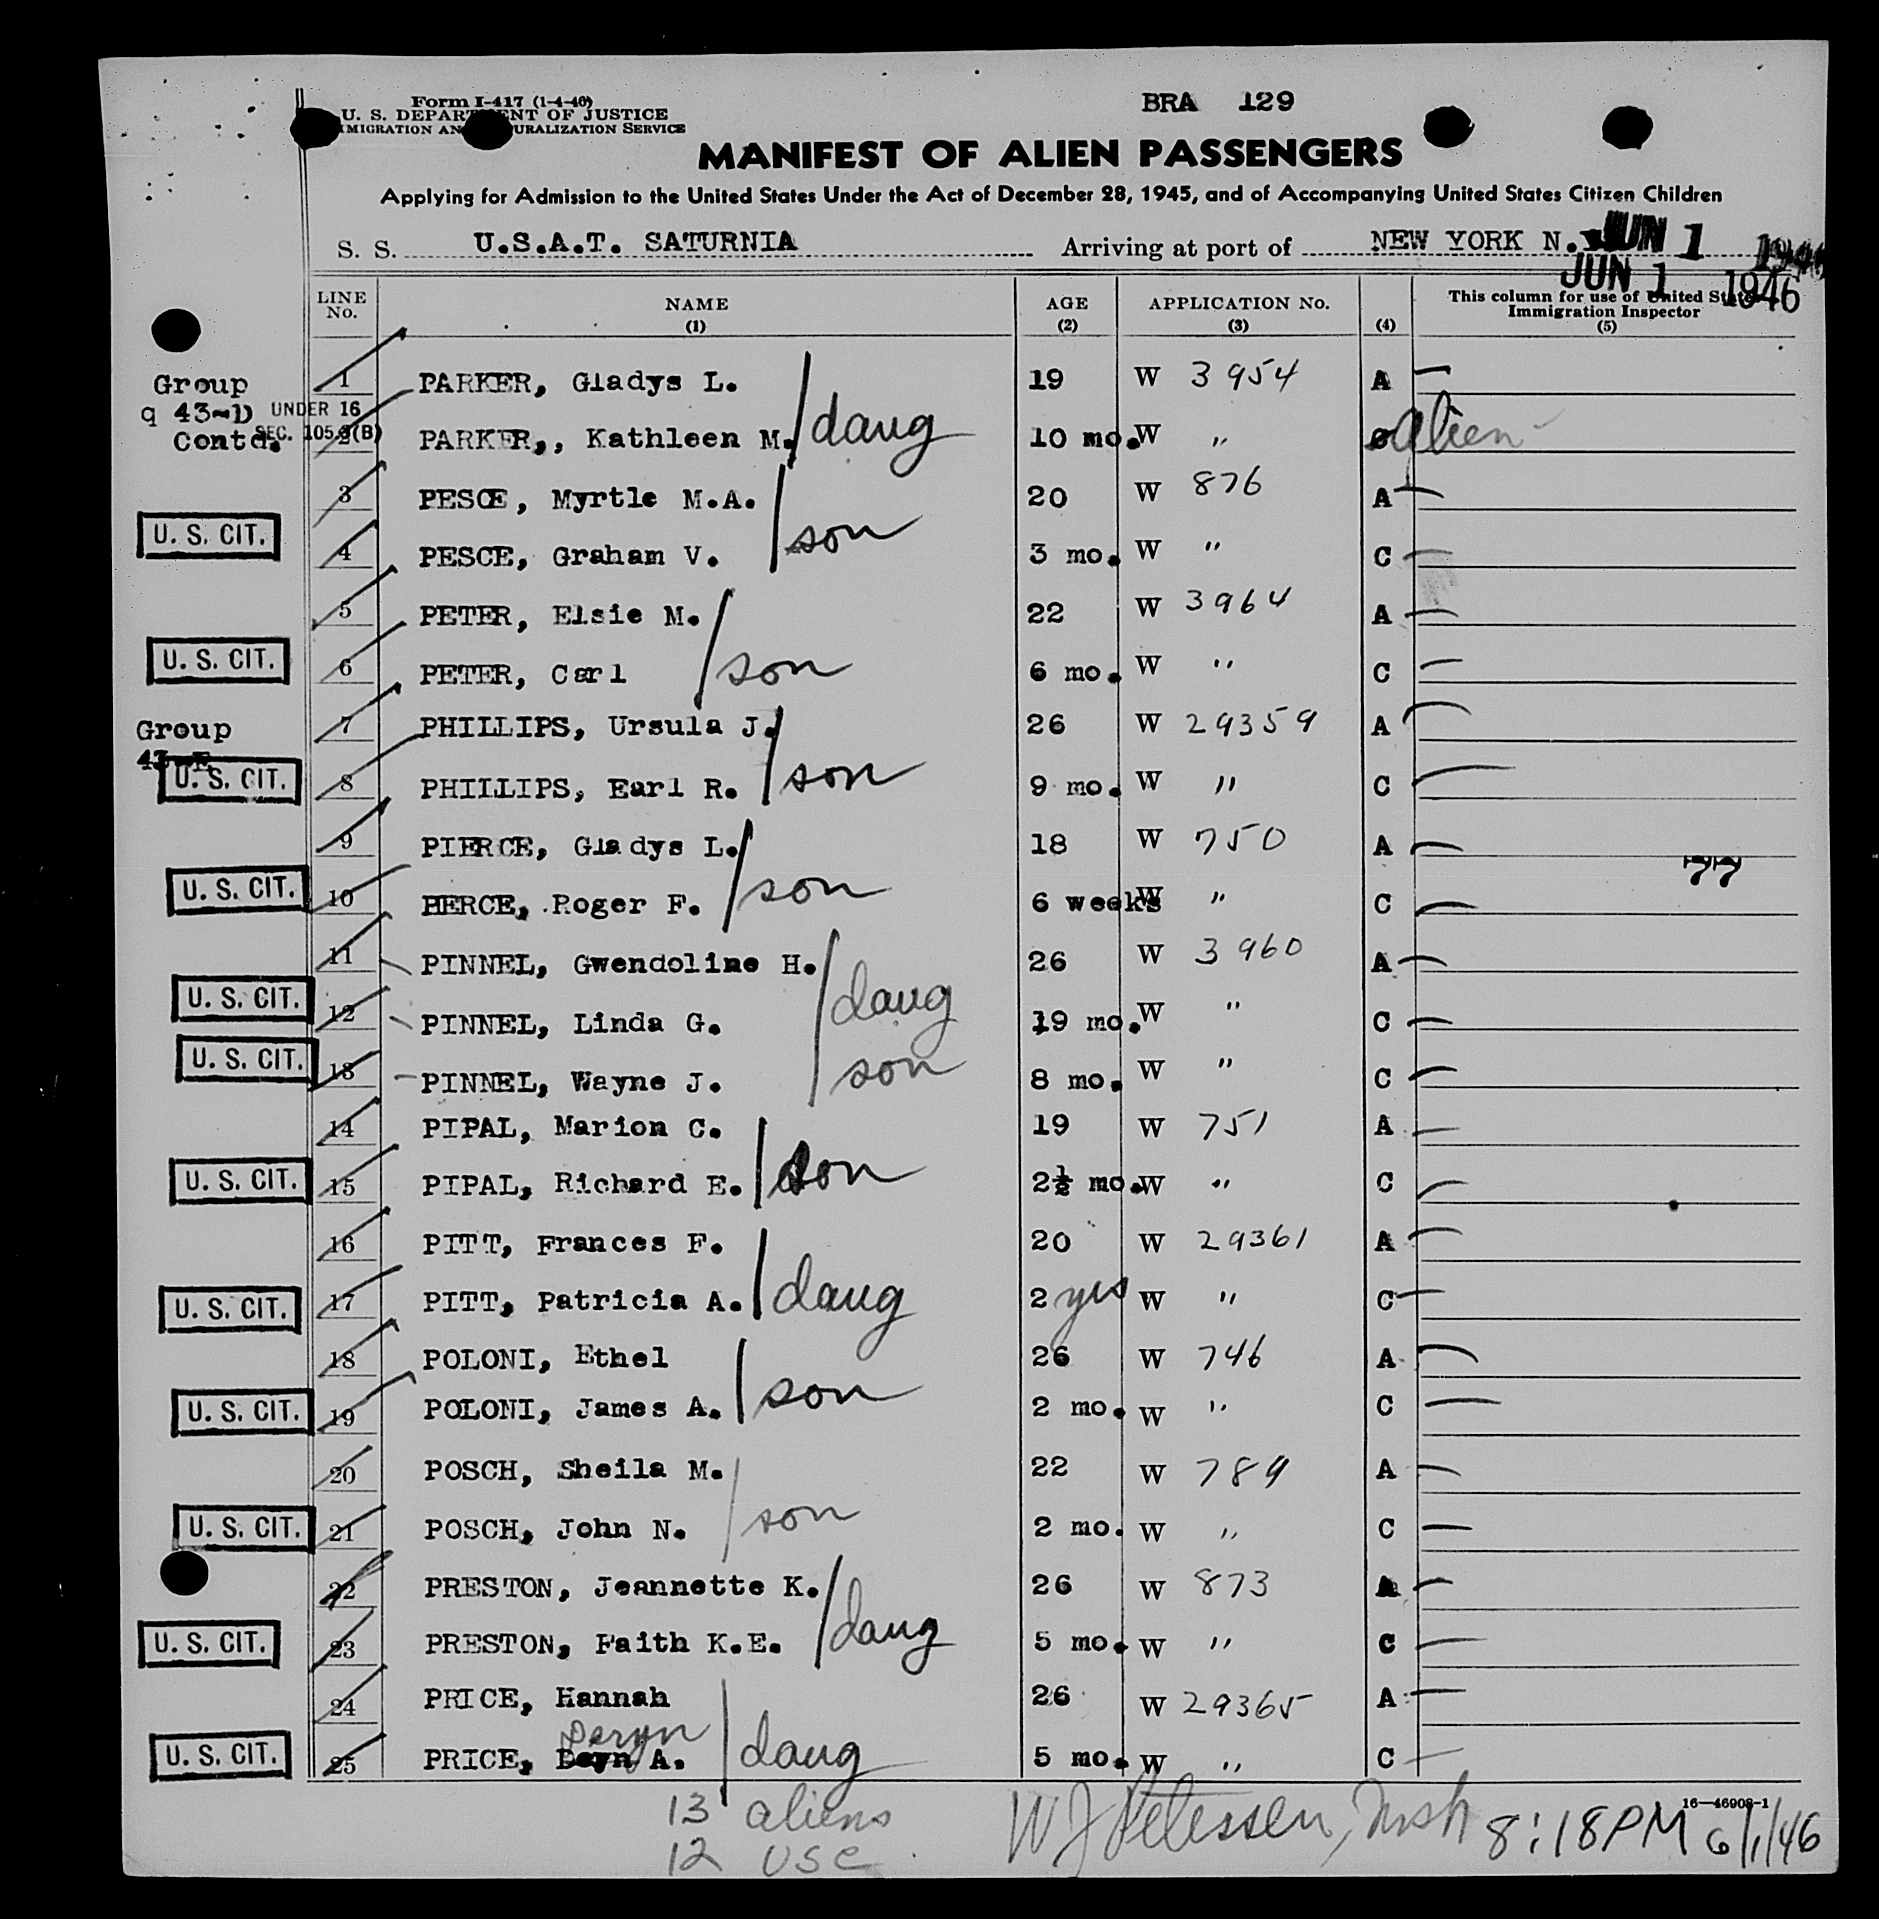 Form I-417 (1-4-46)
BRA 129
U. S. DEPARTMENT OF JUSTICE
IMMIGRATION AND NATURALIZATION SERVICE
MANIFEST OF ALIEN PASSENGERS
Applying for Admission to the United States Under the Act of December 28, 1945, and of Accompanying United States Citizen Children
S. S. U.S.A.T. SATURNIA Arriving at port of NEW YORK N. JUN 1 1946
JUN 1 1946
LINE No. NAME (1) AGE (2) APPLICATION No. (3) (4) This column for use of United States Immigration Inspector (5)
Group 1 PARKER, Gladys L. 19 W 3954 A
q 43-D UNDER 16
Contd. SEC. 105.3(B) 2 PARKER,, Kathleen M. / daug 10 mo. W " alien
3 PESCE, Myrtle M.A. 20 W 876 A
U. S. CIT. 4 PESCE, Graham V. / son 3 mo. W " C
5 PETER, Elsie M. 22 W 3964 A
U. S. CIT. 6 PETER, Carl / son 6 mo. W " C
Group 7 PHILLIPS, Ursula J. 26 W 29359 A
43-E
U. S. CIT. 8 PHILLIPS, Earl R. / son 9 mo. W " C
9 PIERCE, Gladys L. 18 W 750 A
77
U. S. CIT. 10 PIERCE, Roger F. / son 6 weeks W " C
11 PINNEL, Gwendoline H. 26 W 3960 A
U. S. CIT. 12 PINNEL, Linda G. / daug 19 mo. W " C
U. S. CIT. 13 PINNEL, Wayne J. son 8 mo. W " C
14 PIPAL, Marion C. 19 W 751 A
U. S. CIT. 15 PIPAL, Richard E. / son 2½ mo. W " C
16 PITT, Frances F. 20 W 29361 A
U. S. CIT. 17 PITT, Patricia A. / daug 2 yrs W " C
18 POLONI, Ethel 26 W 746 A
U. S. CIT. 19 POLONI, James A. / son 2 mo. W " C
20 POSCH, Sheila M. 22 W 789 A
U. S. CIT. 21 POSCH, John N. / son 2 mo. W " C
22 PRESTON, Jeannette K. 26 W 873 A
U. S. CIT. 23 PRESTON, Faith K.E. / daug 5 mo. W " C
24 PRICE, Hannah 26 W 29365 A
Deryn
U. S. CIT. 25 PRICE, Deyn A. / daug 5 mo. W " C
16—46908-1
13 aliens W J Petessen, Insh 8:18 PM 6/1/46
12 USC